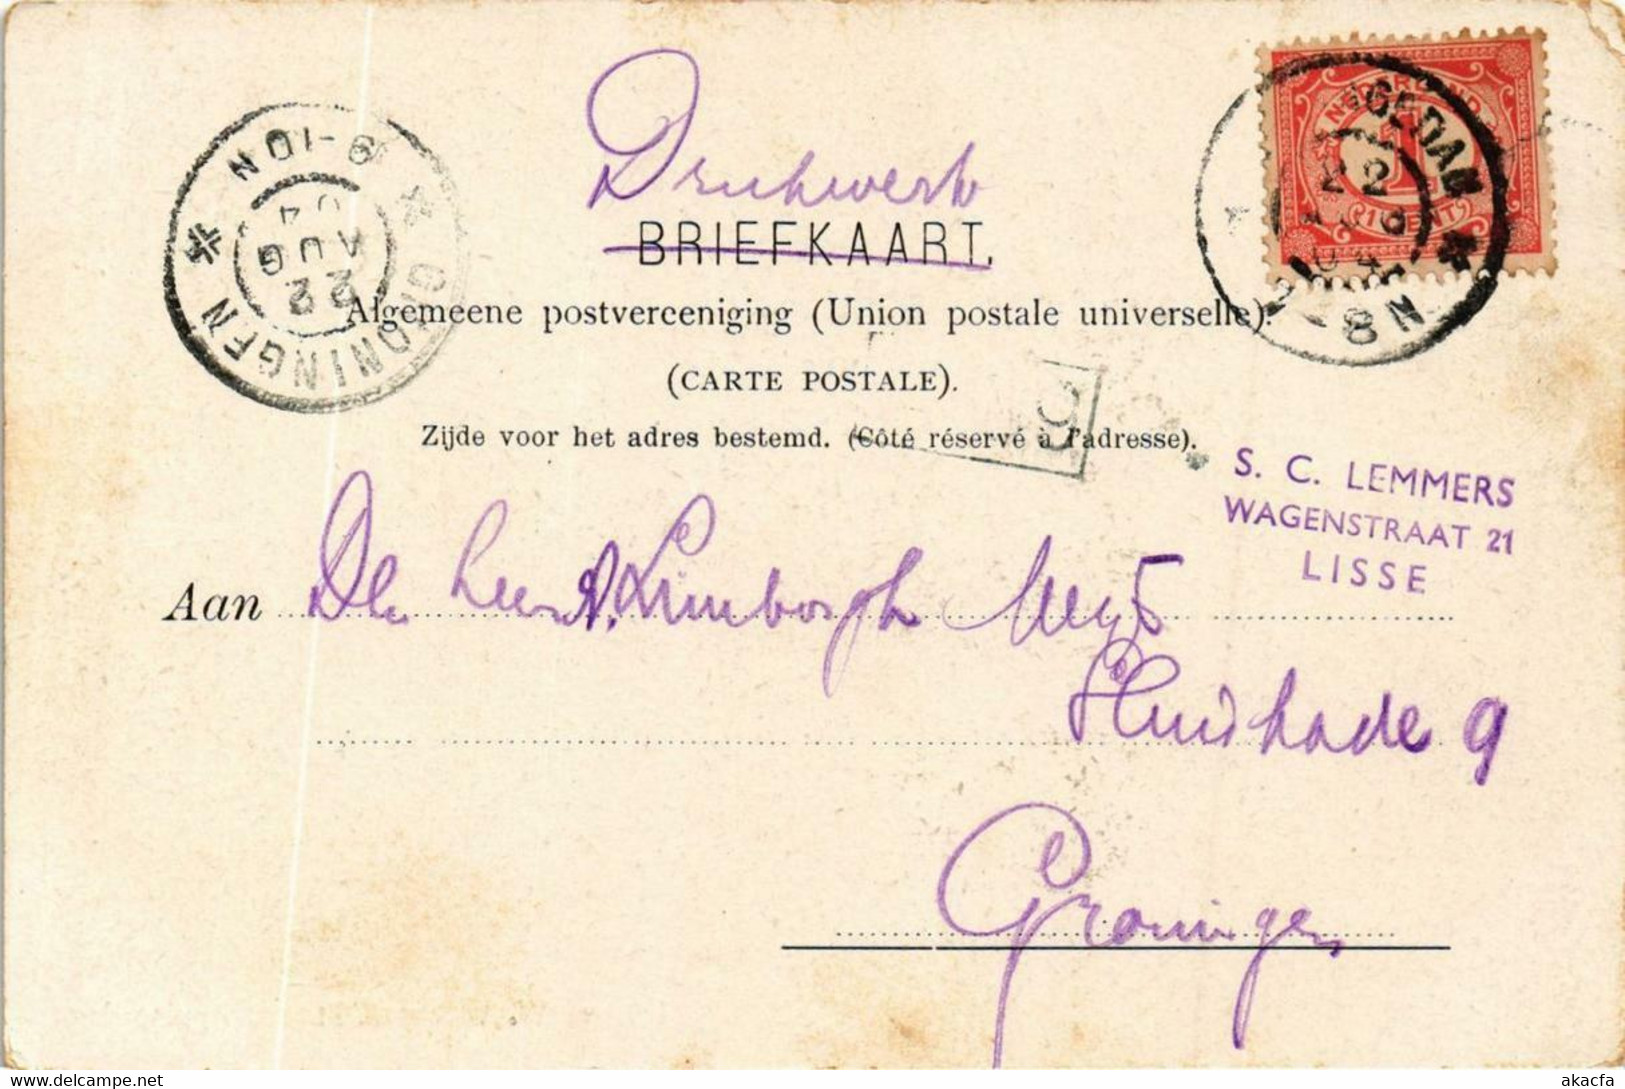 Drukwerk
BRIEFKAART.
Algemeene postvereeniging (Union postale universelle).
(CARTE POSTALE).
Zijde voor het adres bestemd. (Côté réservé à l'adresse).
S. C. LEMMERS
WAGENSTRAAT 21
LISSE
Aan De Heer Limborgh Meijer
9
Groningen
GRONINGEN
9-10N
22
AUG
04
NEDERLAND
1
1 CENT
8 N
akacfa